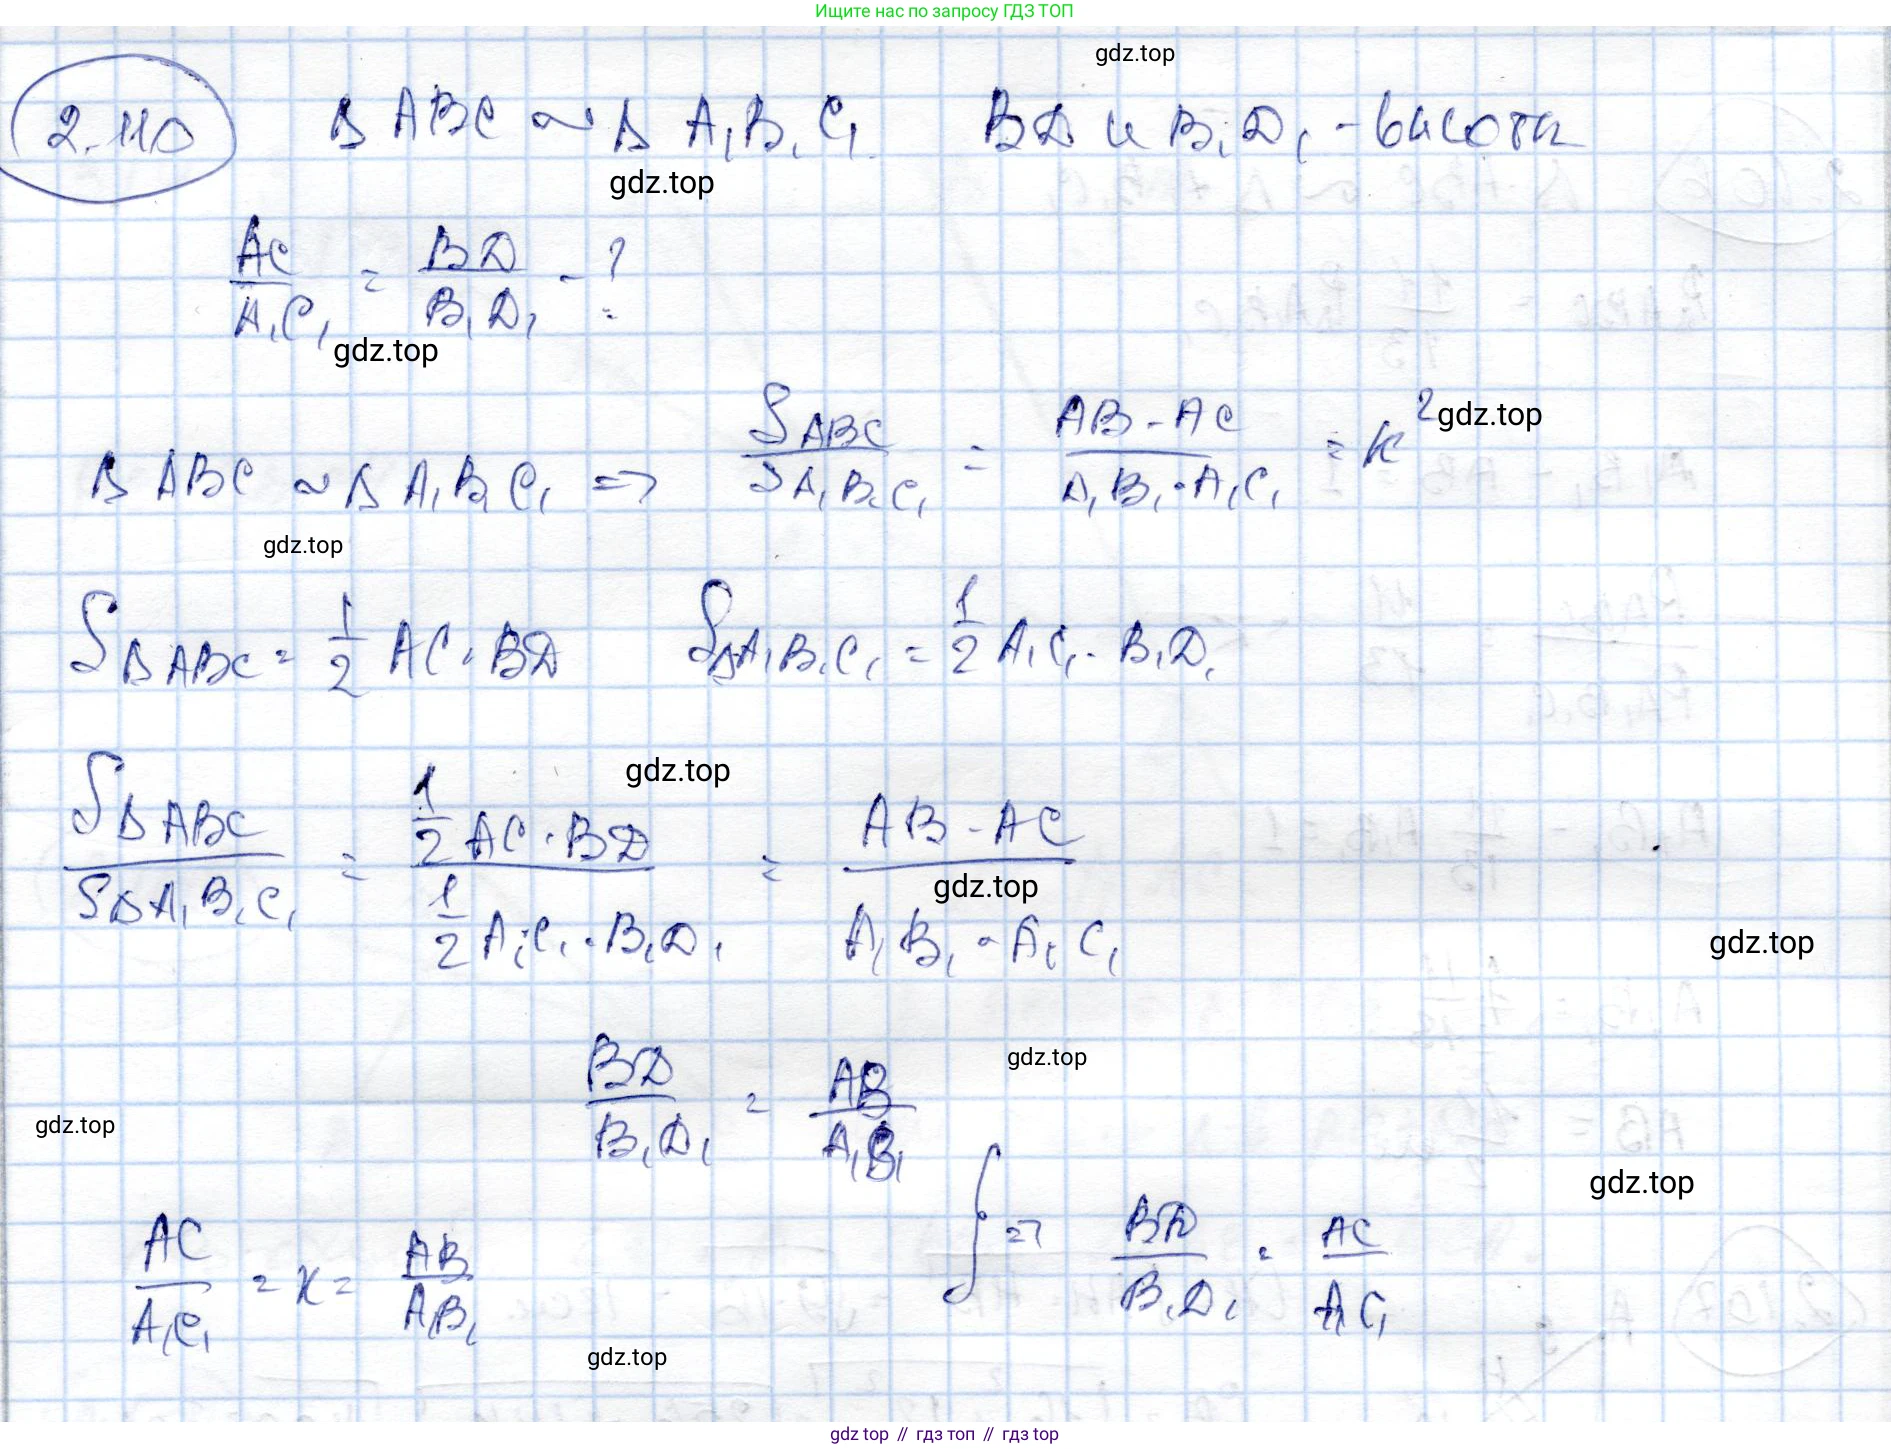 Ищите нас по запросу ГДЗ ТОП
gdz.top
2.110 Δ ABC ~ Δ A₁B₁C₁ BD и B₁D₁ - высоты
gdz.top
AC/A₁C₁ = BD/B₁D₁ - ?
gdz.top
Δ ABC ~ Δ A₁B₁C₁ => S ABC/S A₁B₁C₁ = AB · AC/A₁B₁ · A₁C₁ = k²
gdz.top
gdz.top
S Δ ABC = 1/2 AC · BD S Δ A₁B₁C₁ = 1/2 A₁C₁ · B₁D₁
gdz.top
S Δ ABC/S Δ A₁B₁C₁ = 1/2 AC · BD/1/2 A₁C₁ · B₁D₁ = AB · AC/A₁B₁ · A₁C₁
gdz.top
gdz.top
BD/B₁D₁ = AB/A₁B₁
gdz.top
gdz.top
gdz.top
AC/A₁C₁ = k = AB/A₁B₁ } => BD/B₁D₁ = AC/A₁C₁
gdz.top
gdz top // гдз топ // гдз top